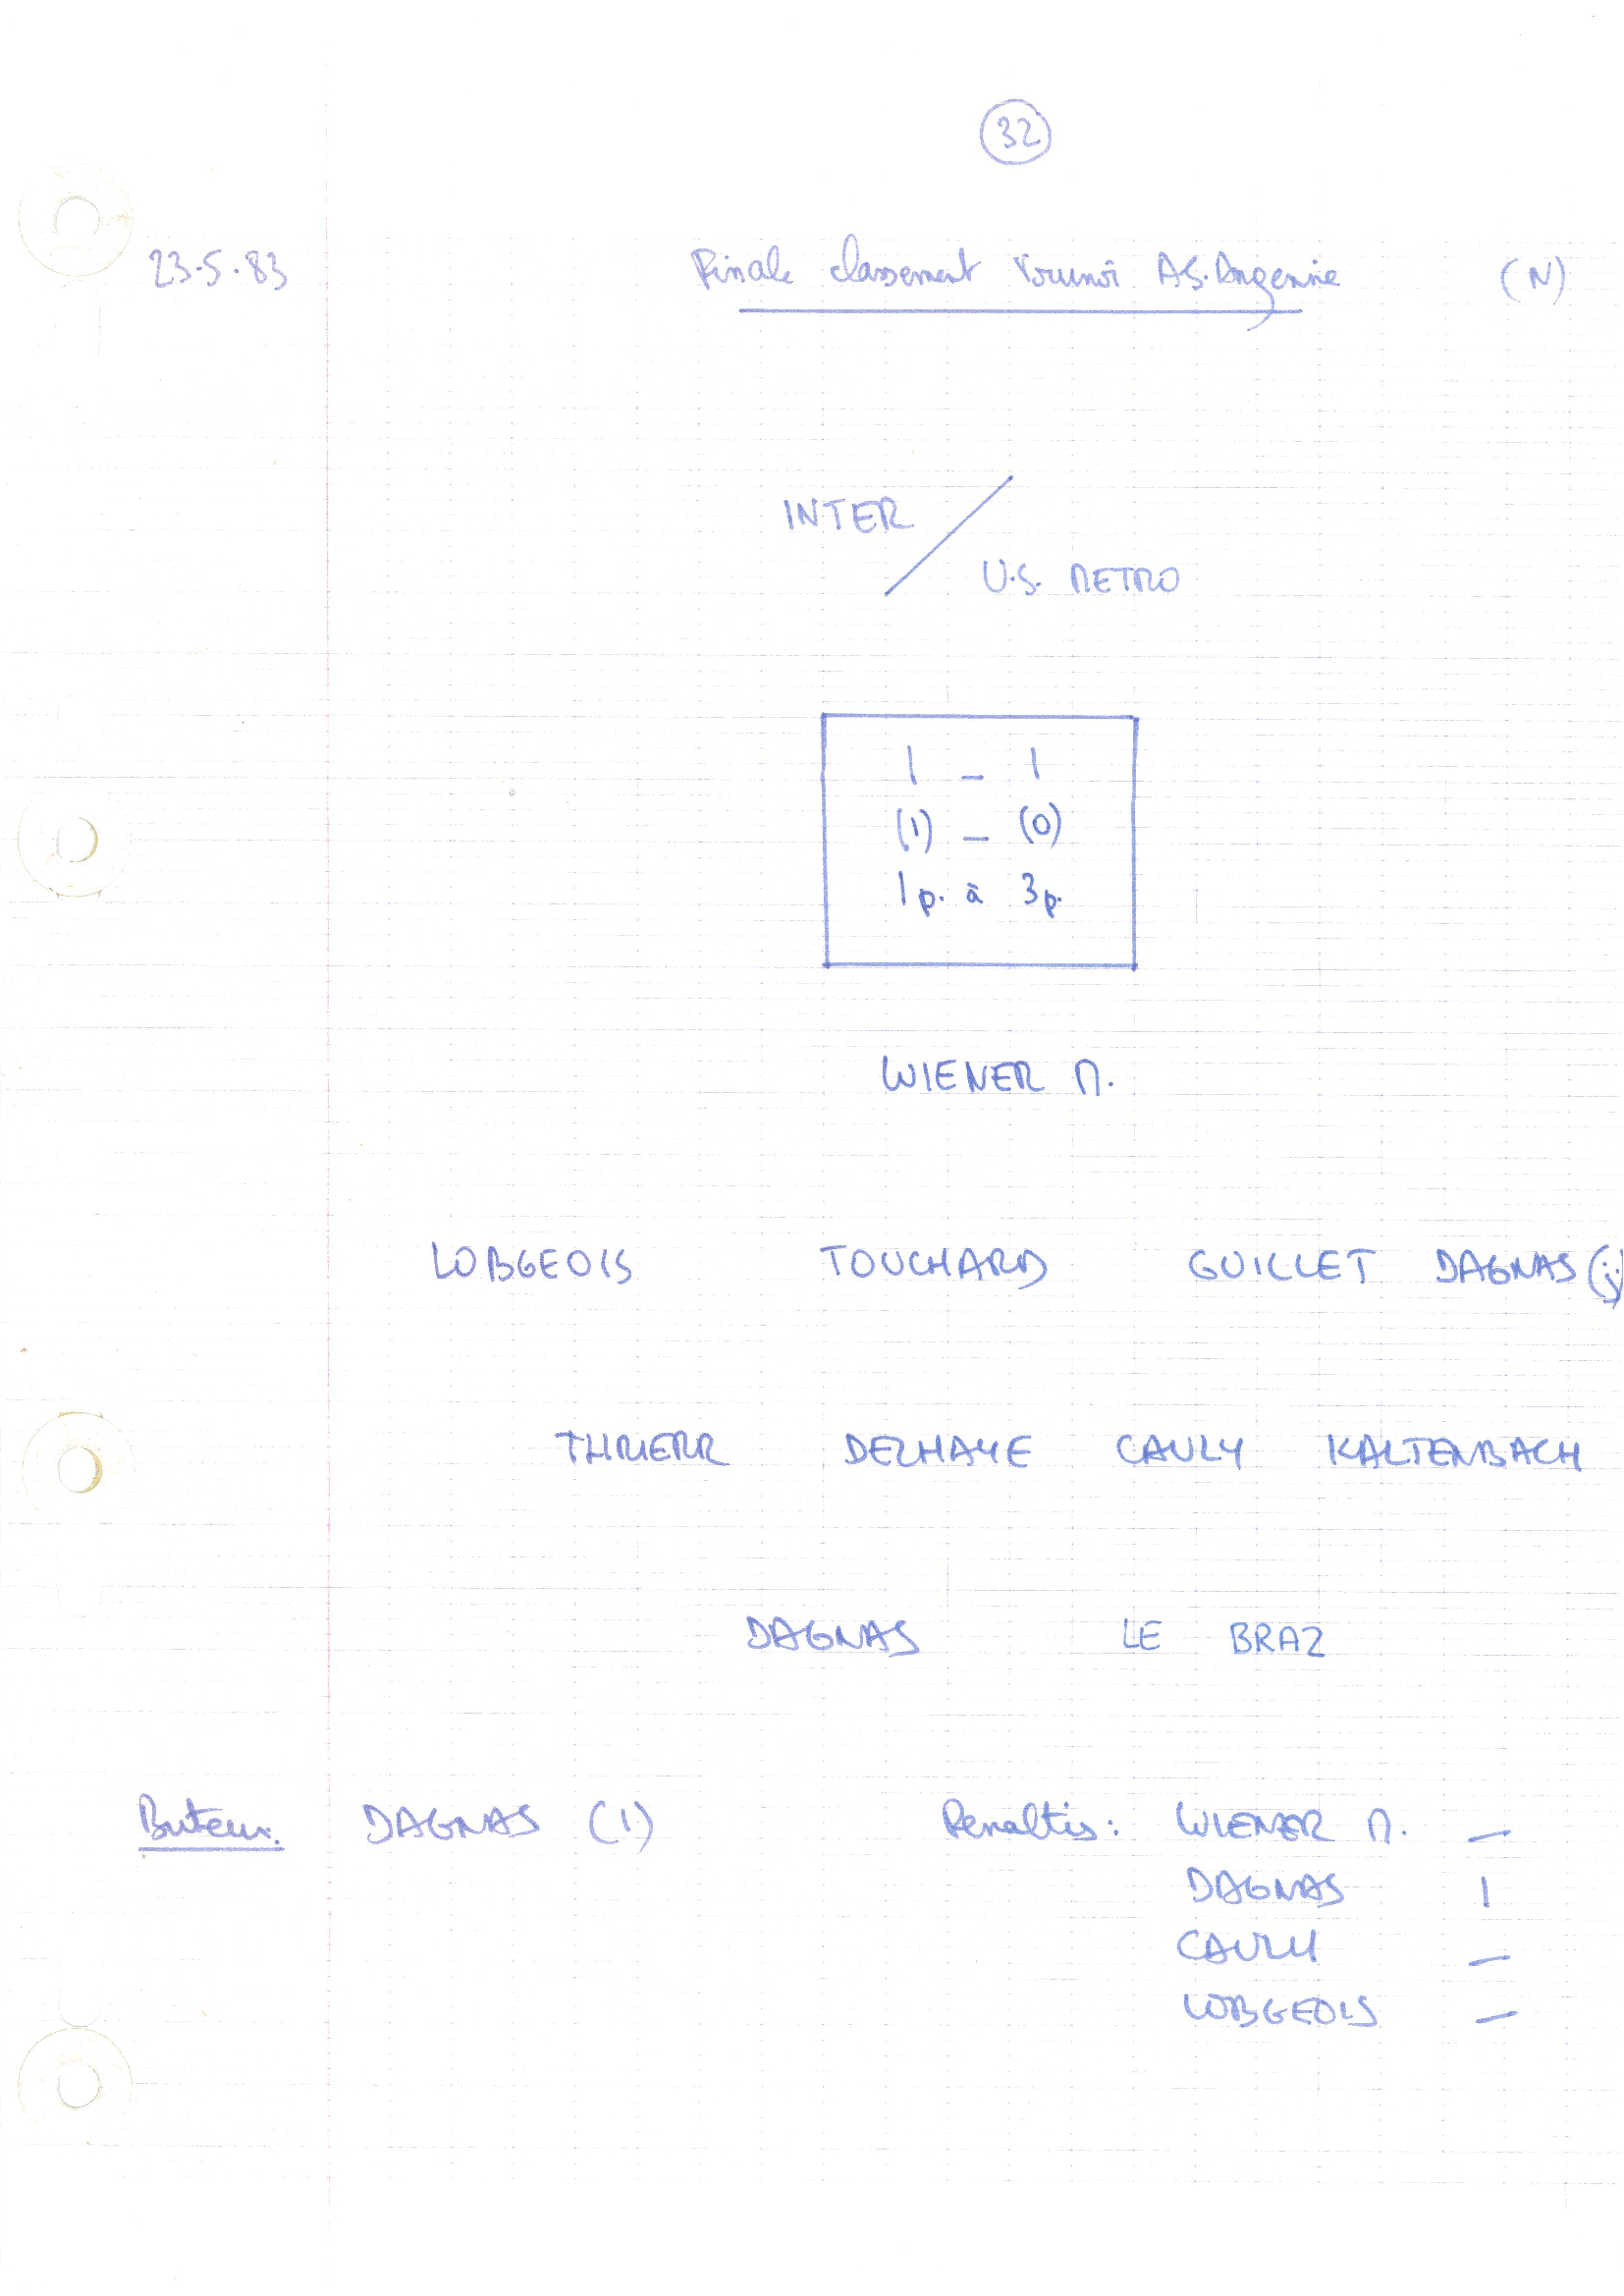 32
23.5.83 Finale classement Tournoi A.S. Argenine (N)
INTER /
U.S. METRO
1 - 1
(1) - (0)
1p. à 3p.
WIENER M.
LOBGEOIS TOUCHARD GUILLET DAGNAS (j)
THRIERR DELHAYE CAULY KALTENBACH
DAGNAS LE BRAZ
Buteur. DAGNAS (1) Penaltis : WIENER M. —
DAGNAS 1
CAULY —
LOBGEOIS —